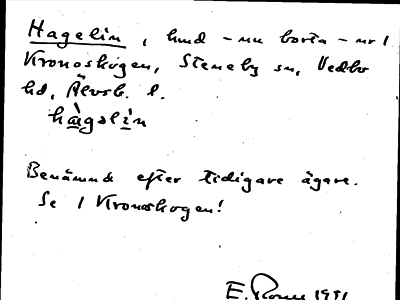 Hagelin, hmd – nu borta – nr 1
Kronoskogen, Steneby sn, Vedbo
hd, Älvsb. l.
hàgəlin
Benämnd efter tidigare ägare.
Se 1 Kronoskogen!
E. 1991